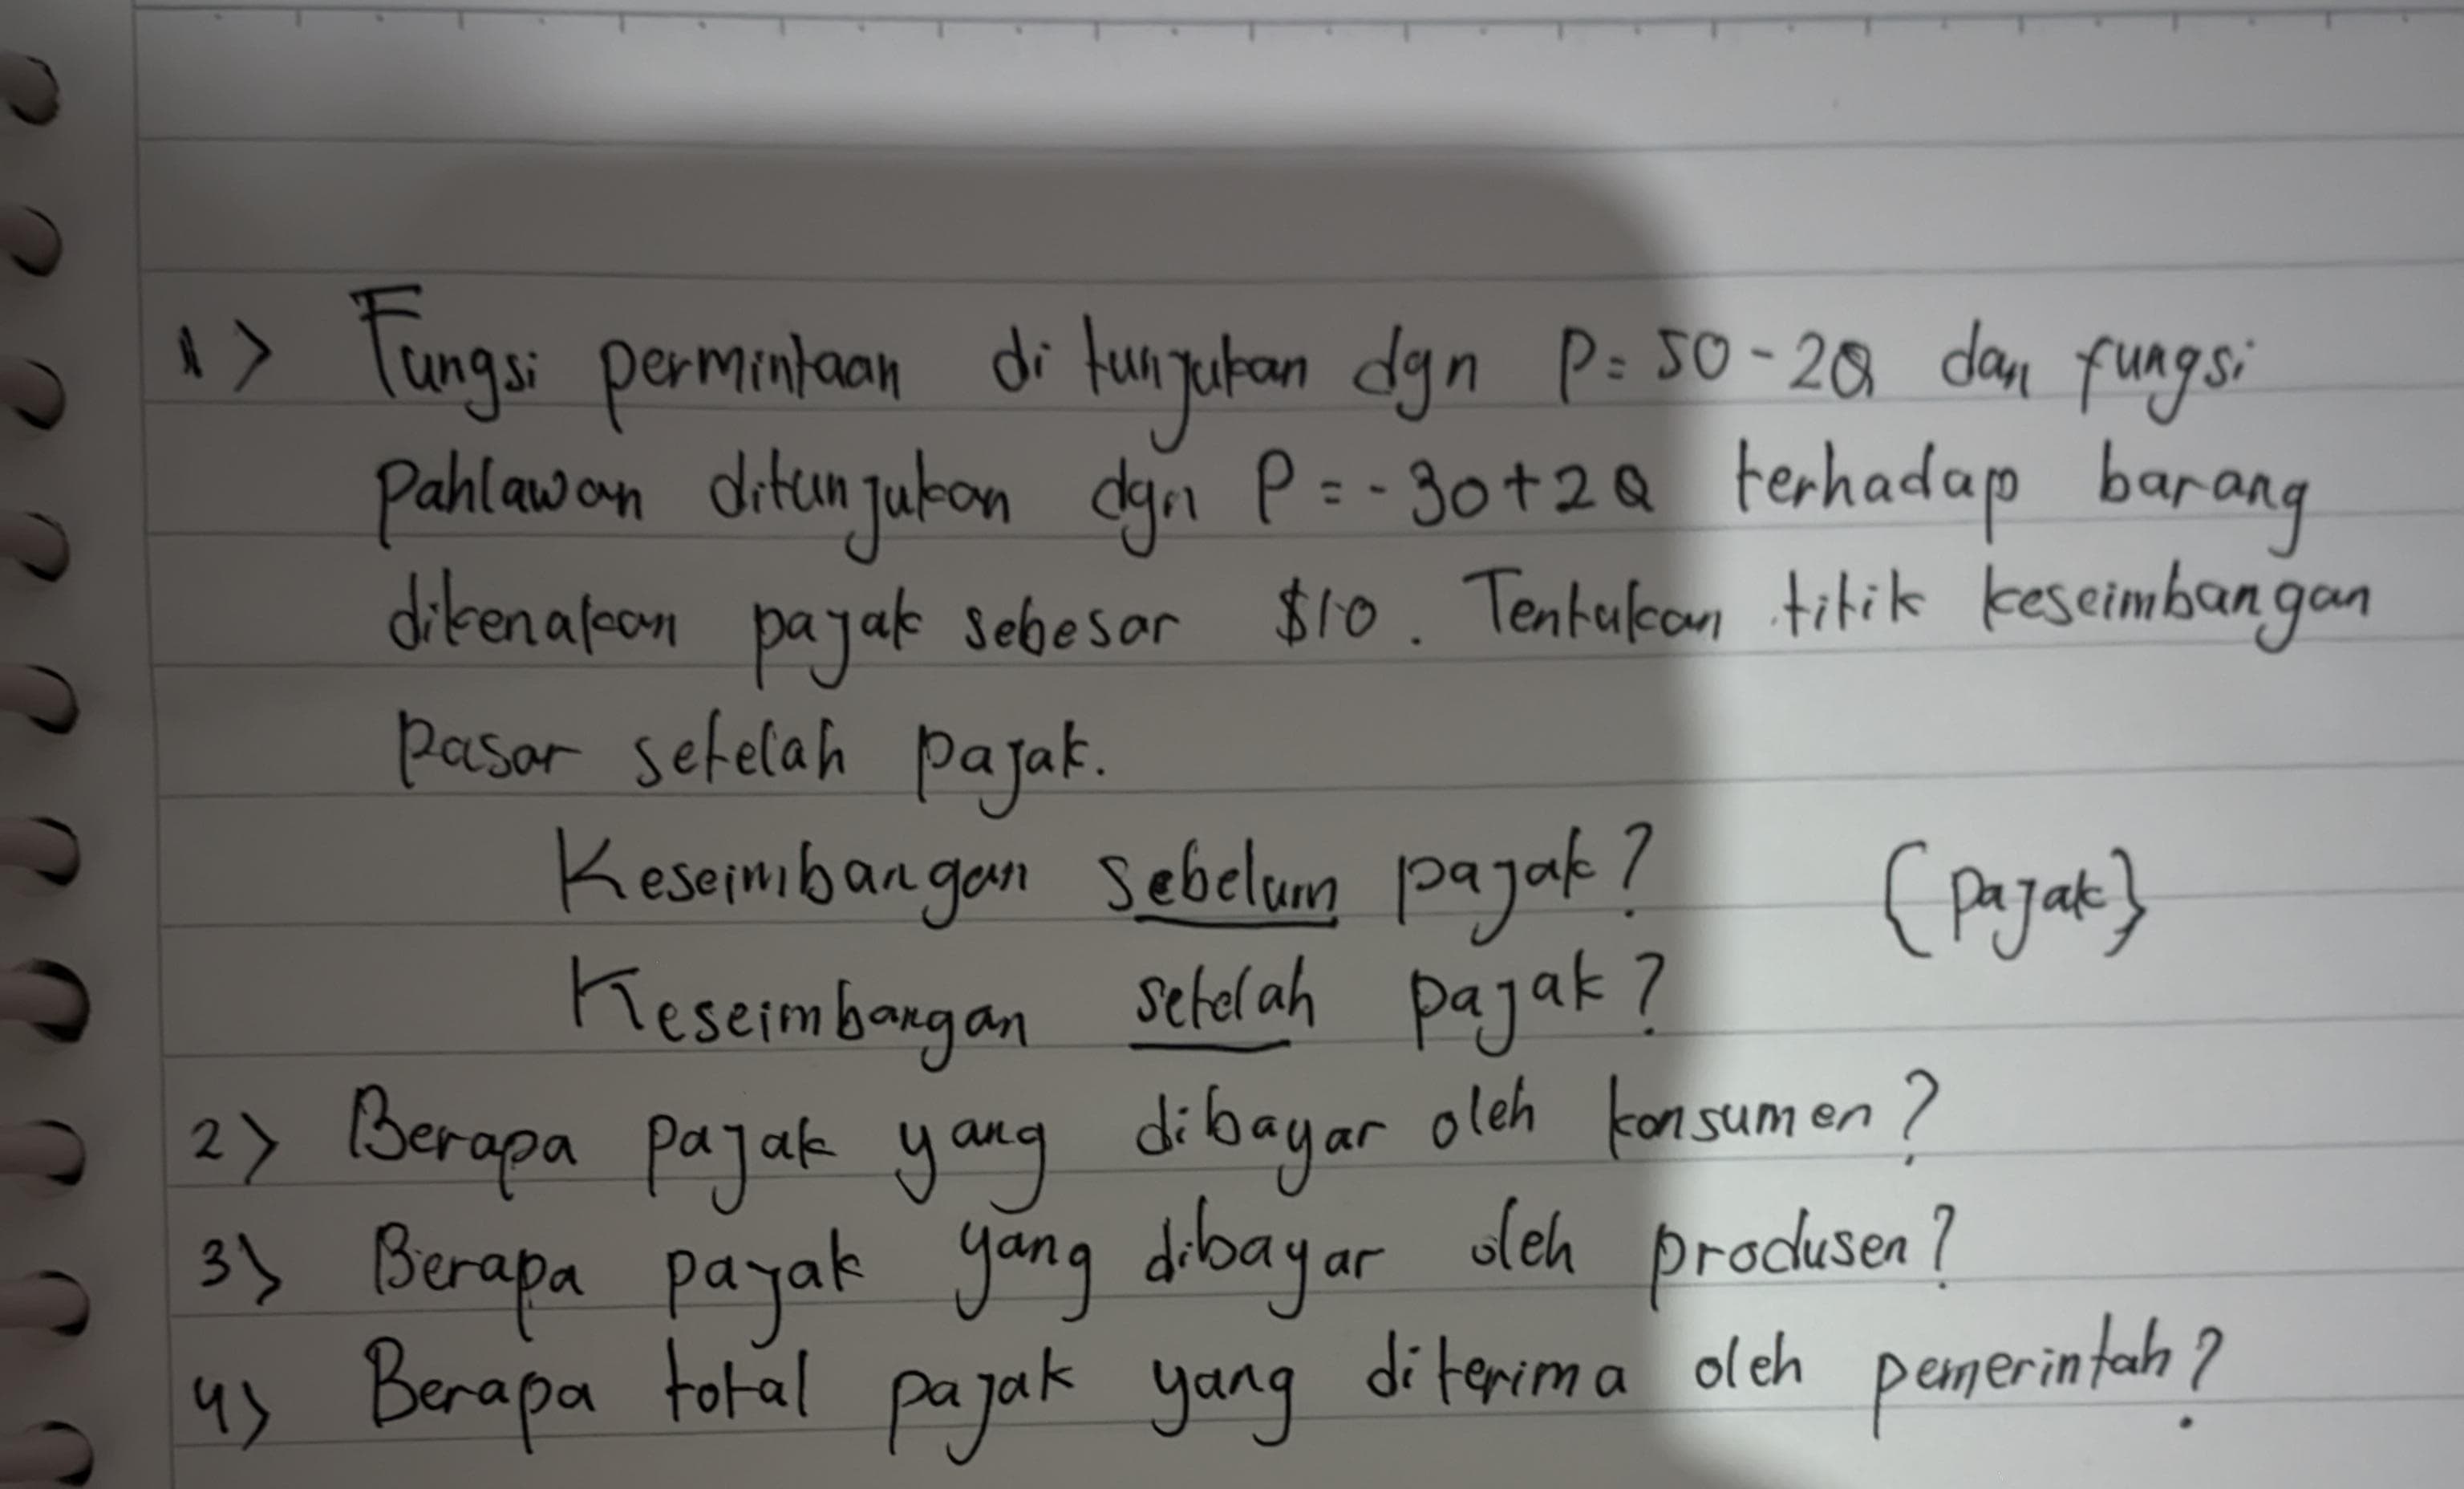 1> Fungsi permintaan di tunjukan dgn P = 50 - 2Q dan fungsi
Pahlawan ditunjukan dgn P = - 30 + 2Q terhadap barang
dikenakan pajak sebesar $10. Tentukan titik keseimbangan
Pasar setelah pajak.
Keseimbangan sebelum pajak? {Pajak}
Keseimbangan setelah pajak?
2> Berapa pajak yang dibayar oleh konsumen?
3> Berapa payak yang dibayar oleh produsen?
4> Berapa total pajak yang diterima oleh pemerintah?